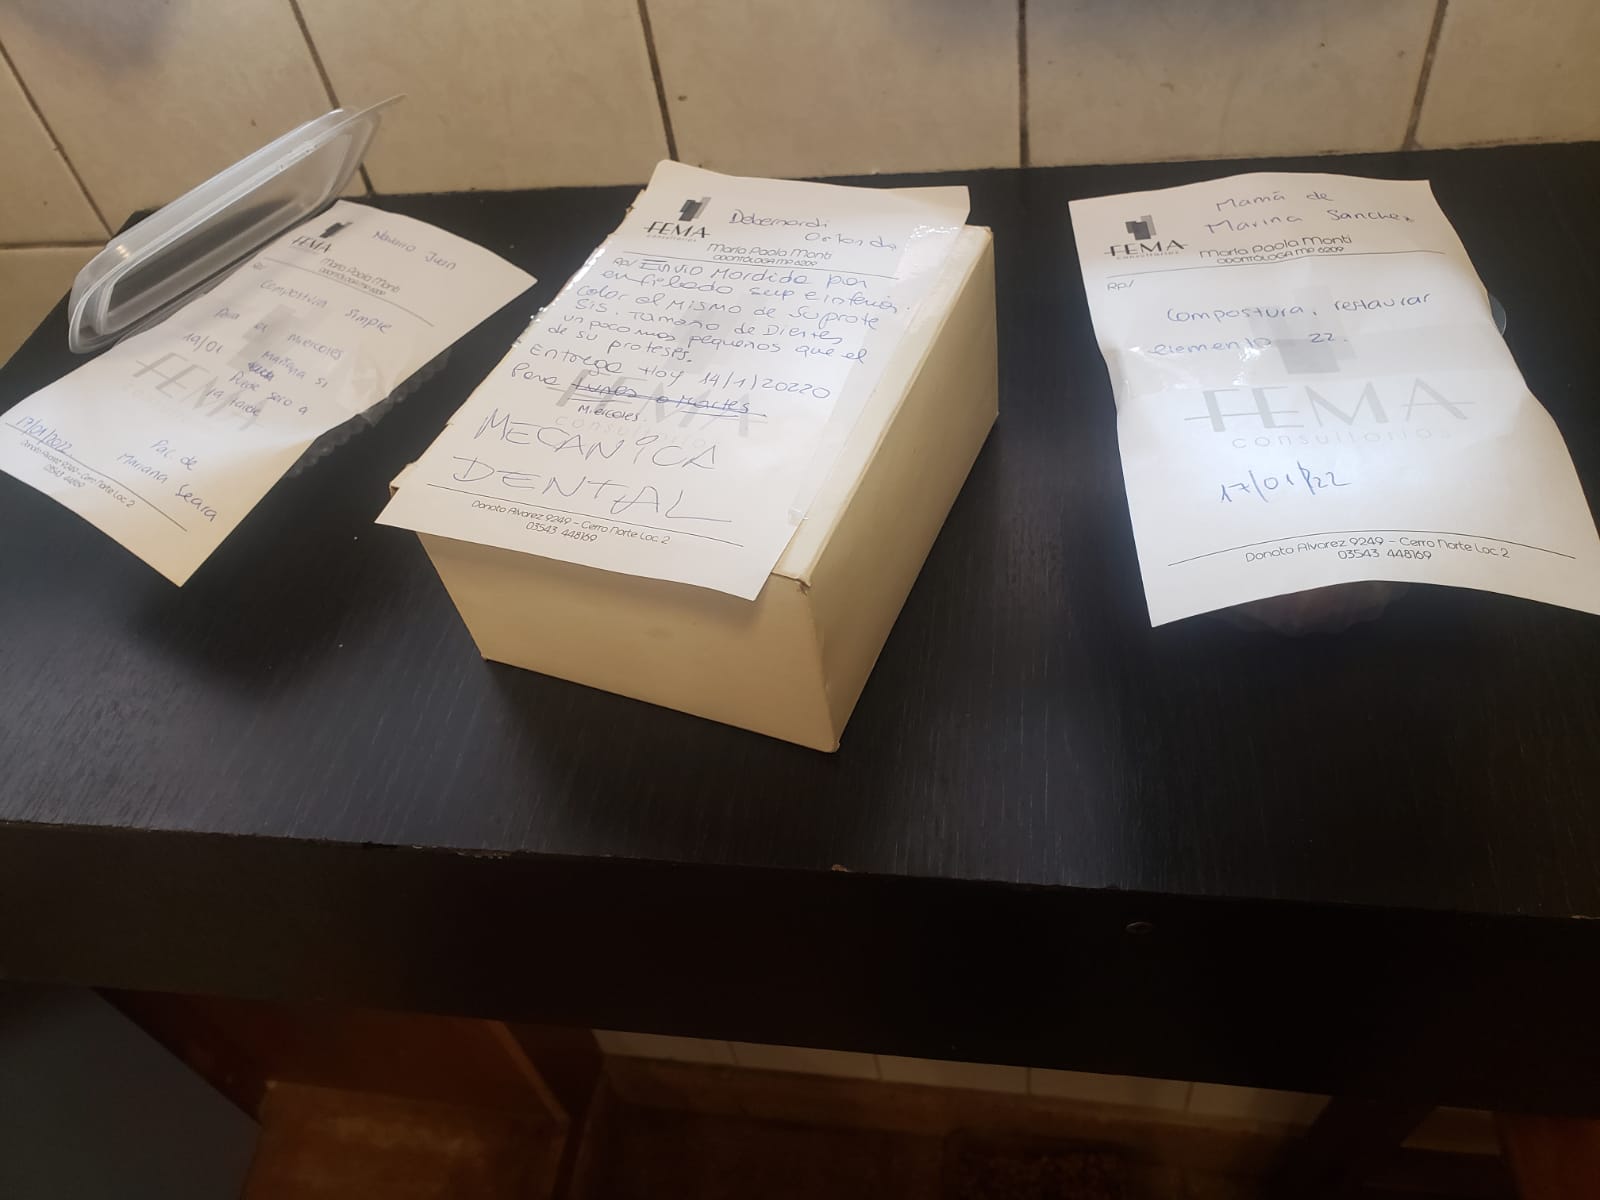 FEMA
consultorios
Navarro Juan
María Paola Monti
ODONTÓLOGA MP 6209
Rp/
Compostura simple
Para el miercoles
19/01 mañana si
puede sero a
la tarde
FEMA
17/01/2022
Pac. de
Mariana Seara
Donato Alvarez 9249 - Cerro Norte Loc. 2
03543 448169
FEMA
consultorios
Debernardi
Orlando
María Paola Monti
ODONTÓLOGA MP 6209
Rp/ Envio Mordida por
enfilado sup e inferior.
Color el Mismo de su prote
sis. Tamaño de Dientes
un poco mas pequeños que el
de su proteses.
Entrega Hoy 14/1/20220
Para Lunes o Martes
Miercoles.
FEMA
consultorios
MECANICA
DENTAL
Donato Alvarez 9249 - Cerro Norte Loc. 2
03543 448169
Mamá de
Marina Sanchez
FEMA
consultorios
María Paola Monti
ODONTÓLOGA MP 6209
Rp/
Compostura, restaurar
elemento 22.
FEMA
consultorios
17/01/22
Donato Alvarez 9249 - Cerro Norte Loc. 2
03543 448169